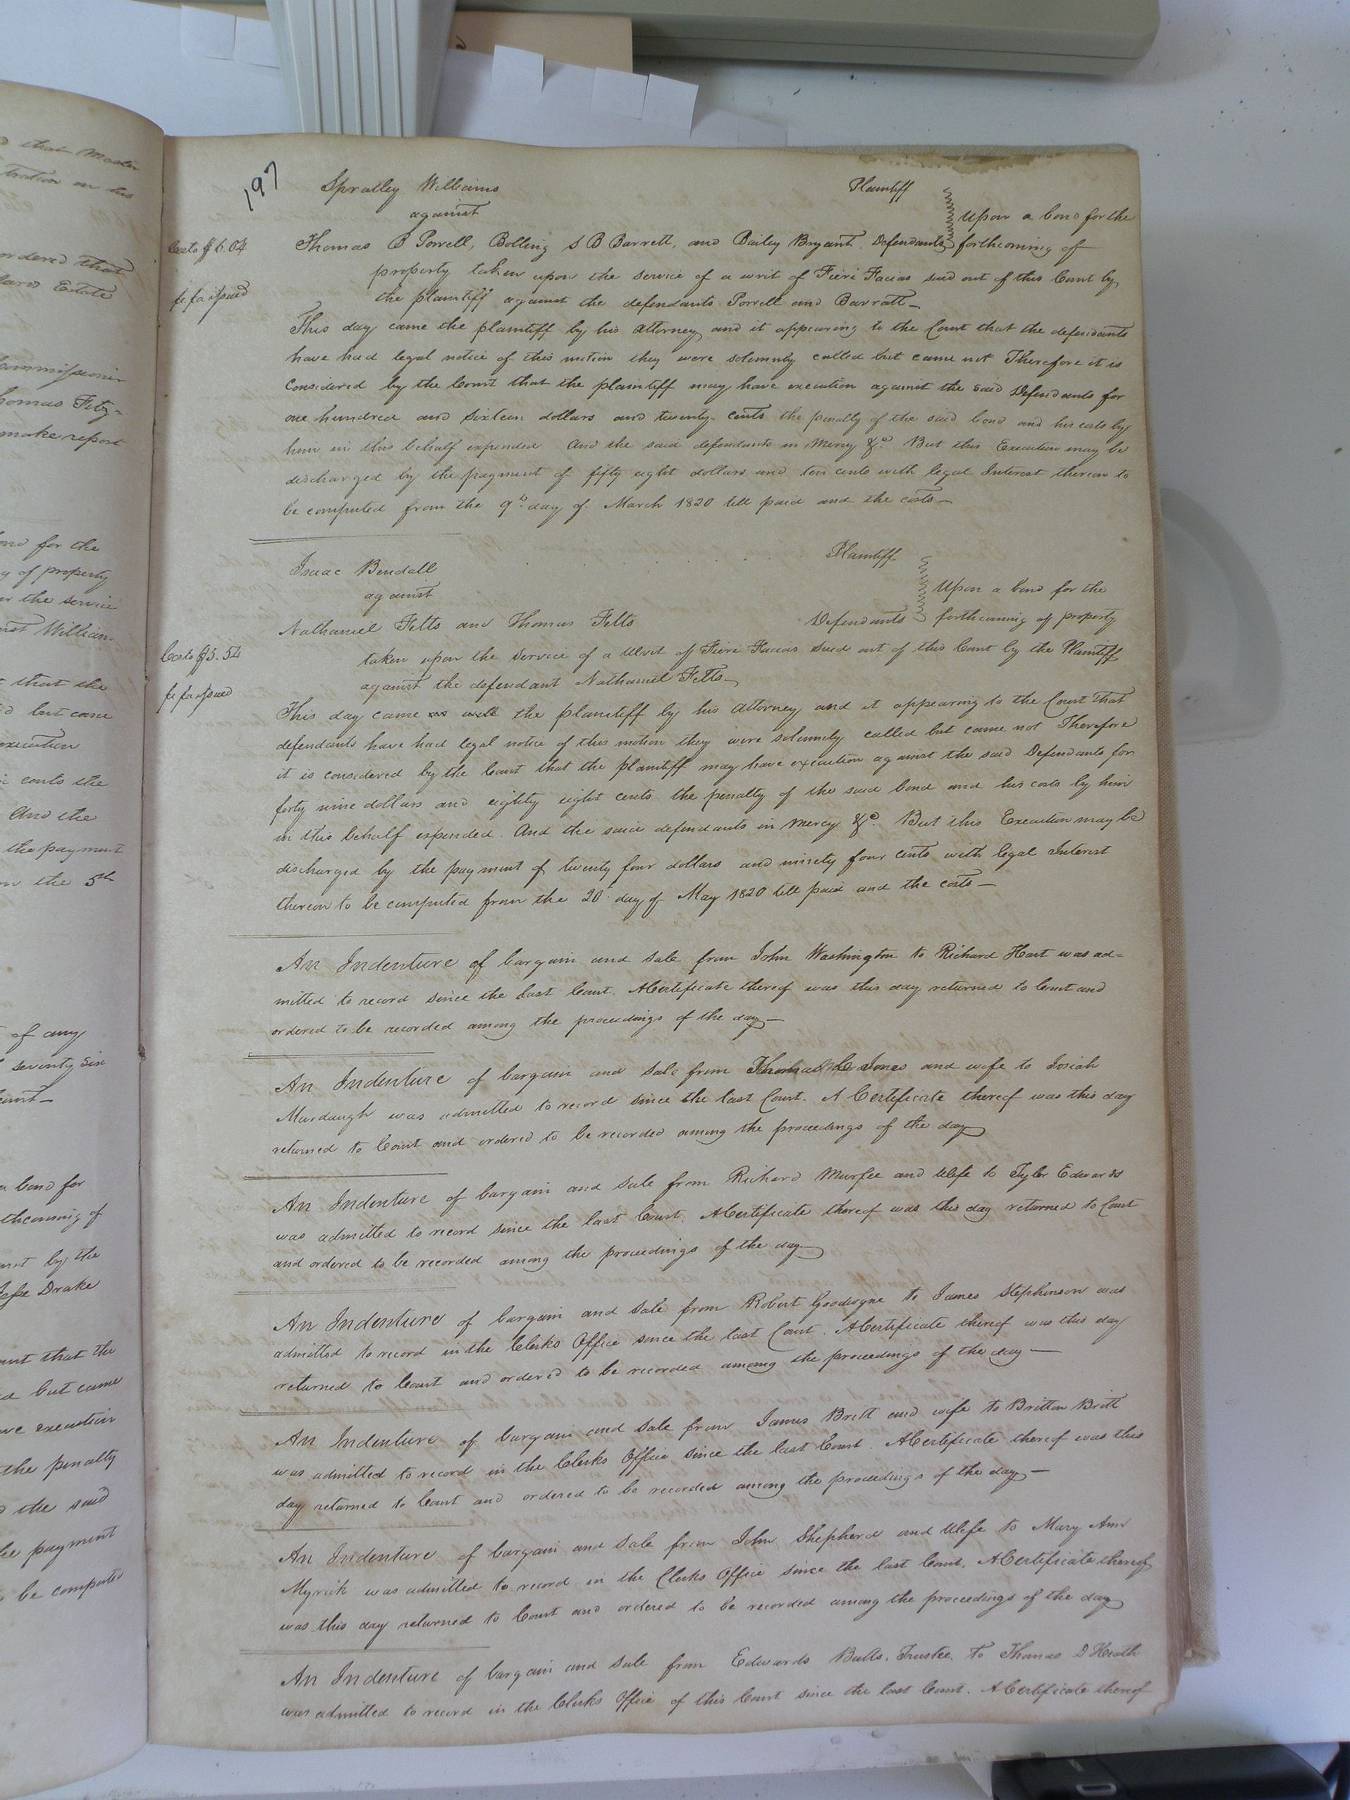 197
Spratley Williams Plaintiff
against
Upon a bond for the
Costs $6.04
Thomas B Porrell, Bolling S B Barrett, and Bailey Bryant Defendants forthcoming of
property taken upon the service of a writ of Fieri Facias sued out of this Court by
fi fa issued
the plaintiff against the defendants Porrell and Barratt—
This day came the plaintiff by his attorney and it appearing to the Court that the defendants
have had legal notice of this motion they were solemnly called but came not Therefore it is
Considered by the Court that the plaintiff may have execution against the said Defendants for
one hundred and sixteen dollars and twenty cents the penalty of the said bond and his costs by
him in this behalf expended And the said defendants in Mercy &c. But this Execution may be
discharged by the payment of fifty eight dollars and ten cents with legal Interest thereon to
be computed from the 9th day of March 1820 till paid and the costs—
Isaac Bendall Plaintiff
against
Upon a bond for the
Nathaniel Felts and Thomas Felts Defendants forthcoming of property
Costs $5.54
taken upon the Service of a Writ of Fieri Facias Sued out of this Court by the Plaintiff
fi fa issued
against the defendant Nathaniel Felts—
This day came the plaintiff by his attorney and it appearing to the Court that
defendants have had legal notice of this motion they were solemnly called but came not Therefore
it is considered by the Court that the plaintiff may have execution against the said Defendants for
forty nine dollars and eighty eight cents the penalty of the said bond and his costs by him
in this behalf expended. And the said defendants in mercy &c. But this Execution may be
discharged by the payment of twenty four dollars and ninety four cents with legal Interest
thereon to be computed from the 20 day of May 1820 till paid and the costs—
An Indenture of bargain and sale from John Washington to Richard Hart was ad=
mitted to record since the last Court. A Certificate thereof was this day returned to Court and
ordered to be recorded among the proceedings of the day—
An Indenture of bargain and sale from Jones and wife to Josiah
Murdaugh was admitted to record since the last Court. A Certificate thereof was this day
returned to Court and ordered to be recorded among the proceedings of the day
An Indenture of bargain and sale from Richard Murfee and Wife to Tyler Edwards
was admitted to record since the last Court. A Certificate thereof was this day returned to Court
and ordered to be recorded among the proceedings of the day—
An Indenture of bargain and sale from Robert Goodwyne to James Stephenson was
admitted to record in the Clerks Office since the last Court. A Certificate thereof was this day
returned to Court and ordered to be recorded among the proceedings of the day—
An Indenture of bargain and sale from James Britt and wife to Britton Britt
was admitted to record in the Clerks Office since the last Court. A Certificate thereof was this
day returned to Court and ordered to be recorded among the proceedings of the day—
An Indenture of bargain and sale from John Shepherd and Wife to Mary Ann
Myrick was admitted to record in the Clerks Office since the last Court. A Certificate thereof
was this day returned to Court and ordered to be recorded among the proceedings of the day
An Indenture of bargain and sale from Edwards Butts, Trustee to Thomas D Heath
was admitted to record in the Clerks Office of this Court since the last Court. A Certificate thereof